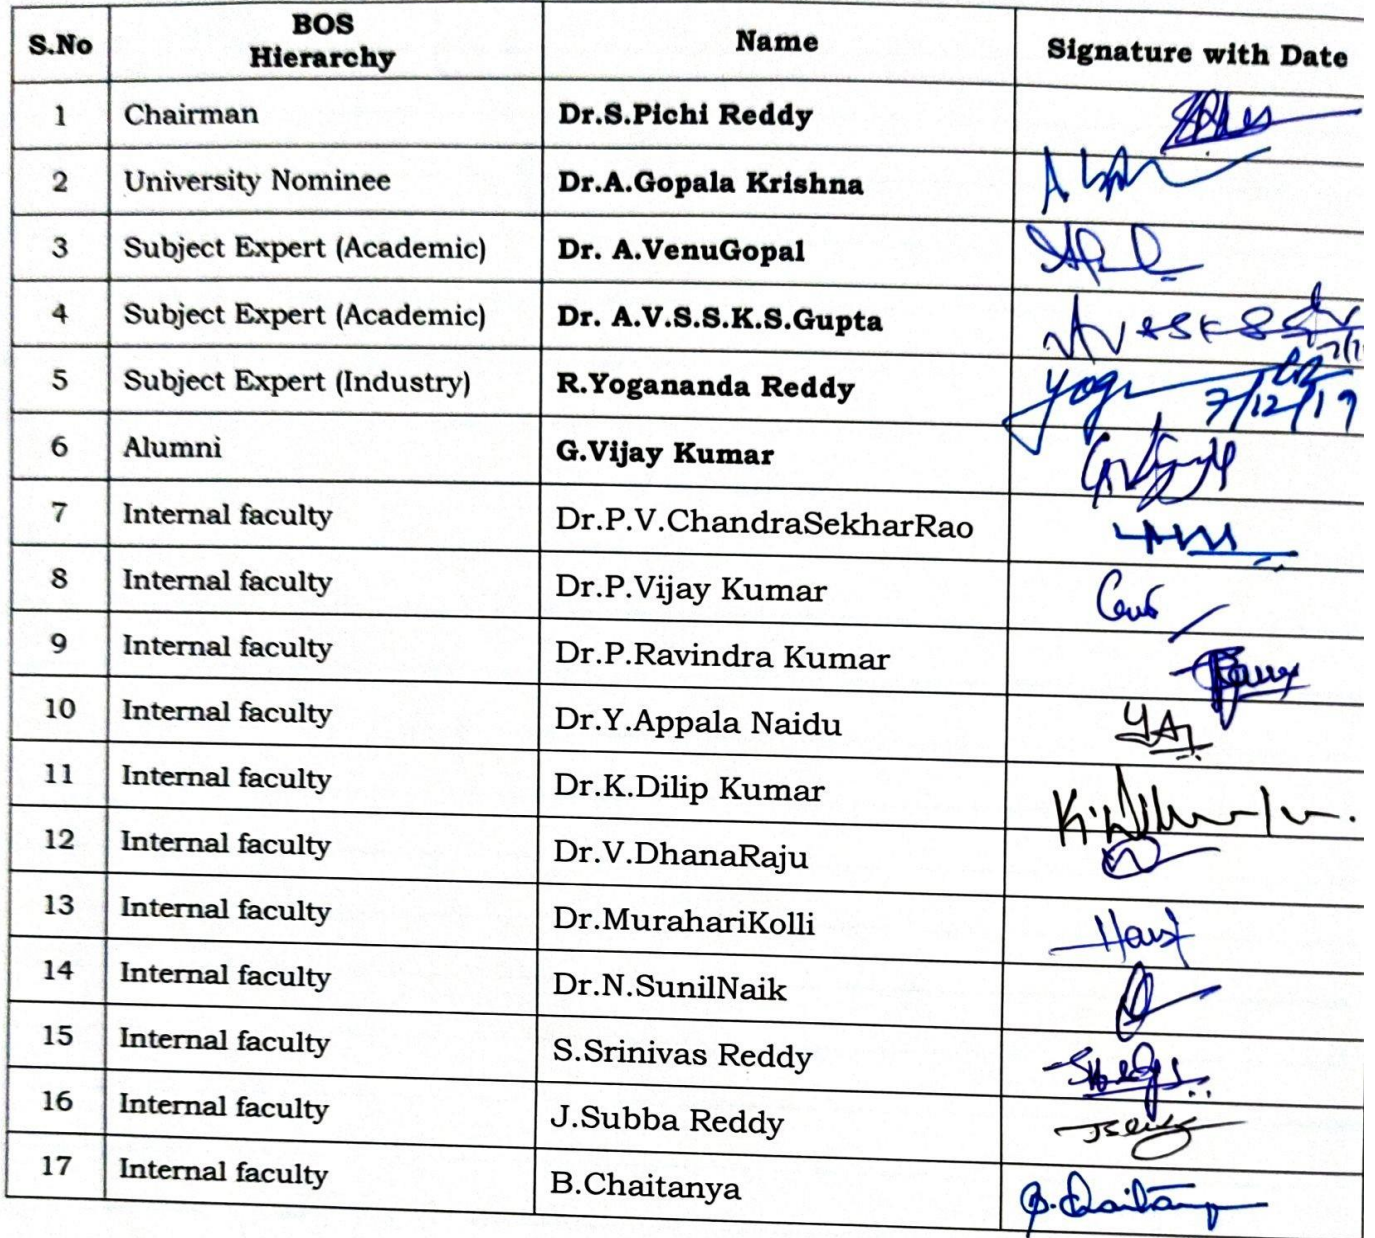 S.No BOS Hierarchy Name Signature with Date
1 Chairman Dr.S.Pichi Reddy
2 University Nominee Dr.A.Gopala Krishna
3 Subject Expert (Academic) Dr. A.VenuGopal
4 Subject Expert (Academic) Dr. A.V.S.S.K.S.Gupta
5 Subject Expert (Industry) R.Yogananda Reddy 7/12/19
6 Alumni G.Vijay Kumar
7 Internal faculty Dr.P.V.ChandraSekharRao
8 Internal faculty Dr.P.Vijay Kumar
9 Internal faculty Dr.P.Ravindra Kumar
10 Internal faculty Dr.Y.Appala Naidu
11 Internal faculty Dr.K.Dilip Kumar
12 Internal faculty Dr.V.DhanaRaju
13 Internal faculty Dr.MurahariKolli
14 Internal faculty Dr.N.SunilNaik
15 Internal faculty S.Srinivas Reddy
16 Internal faculty J.Subba Reddy
17 Internal faculty B.Chaitanya B.Chaitanya